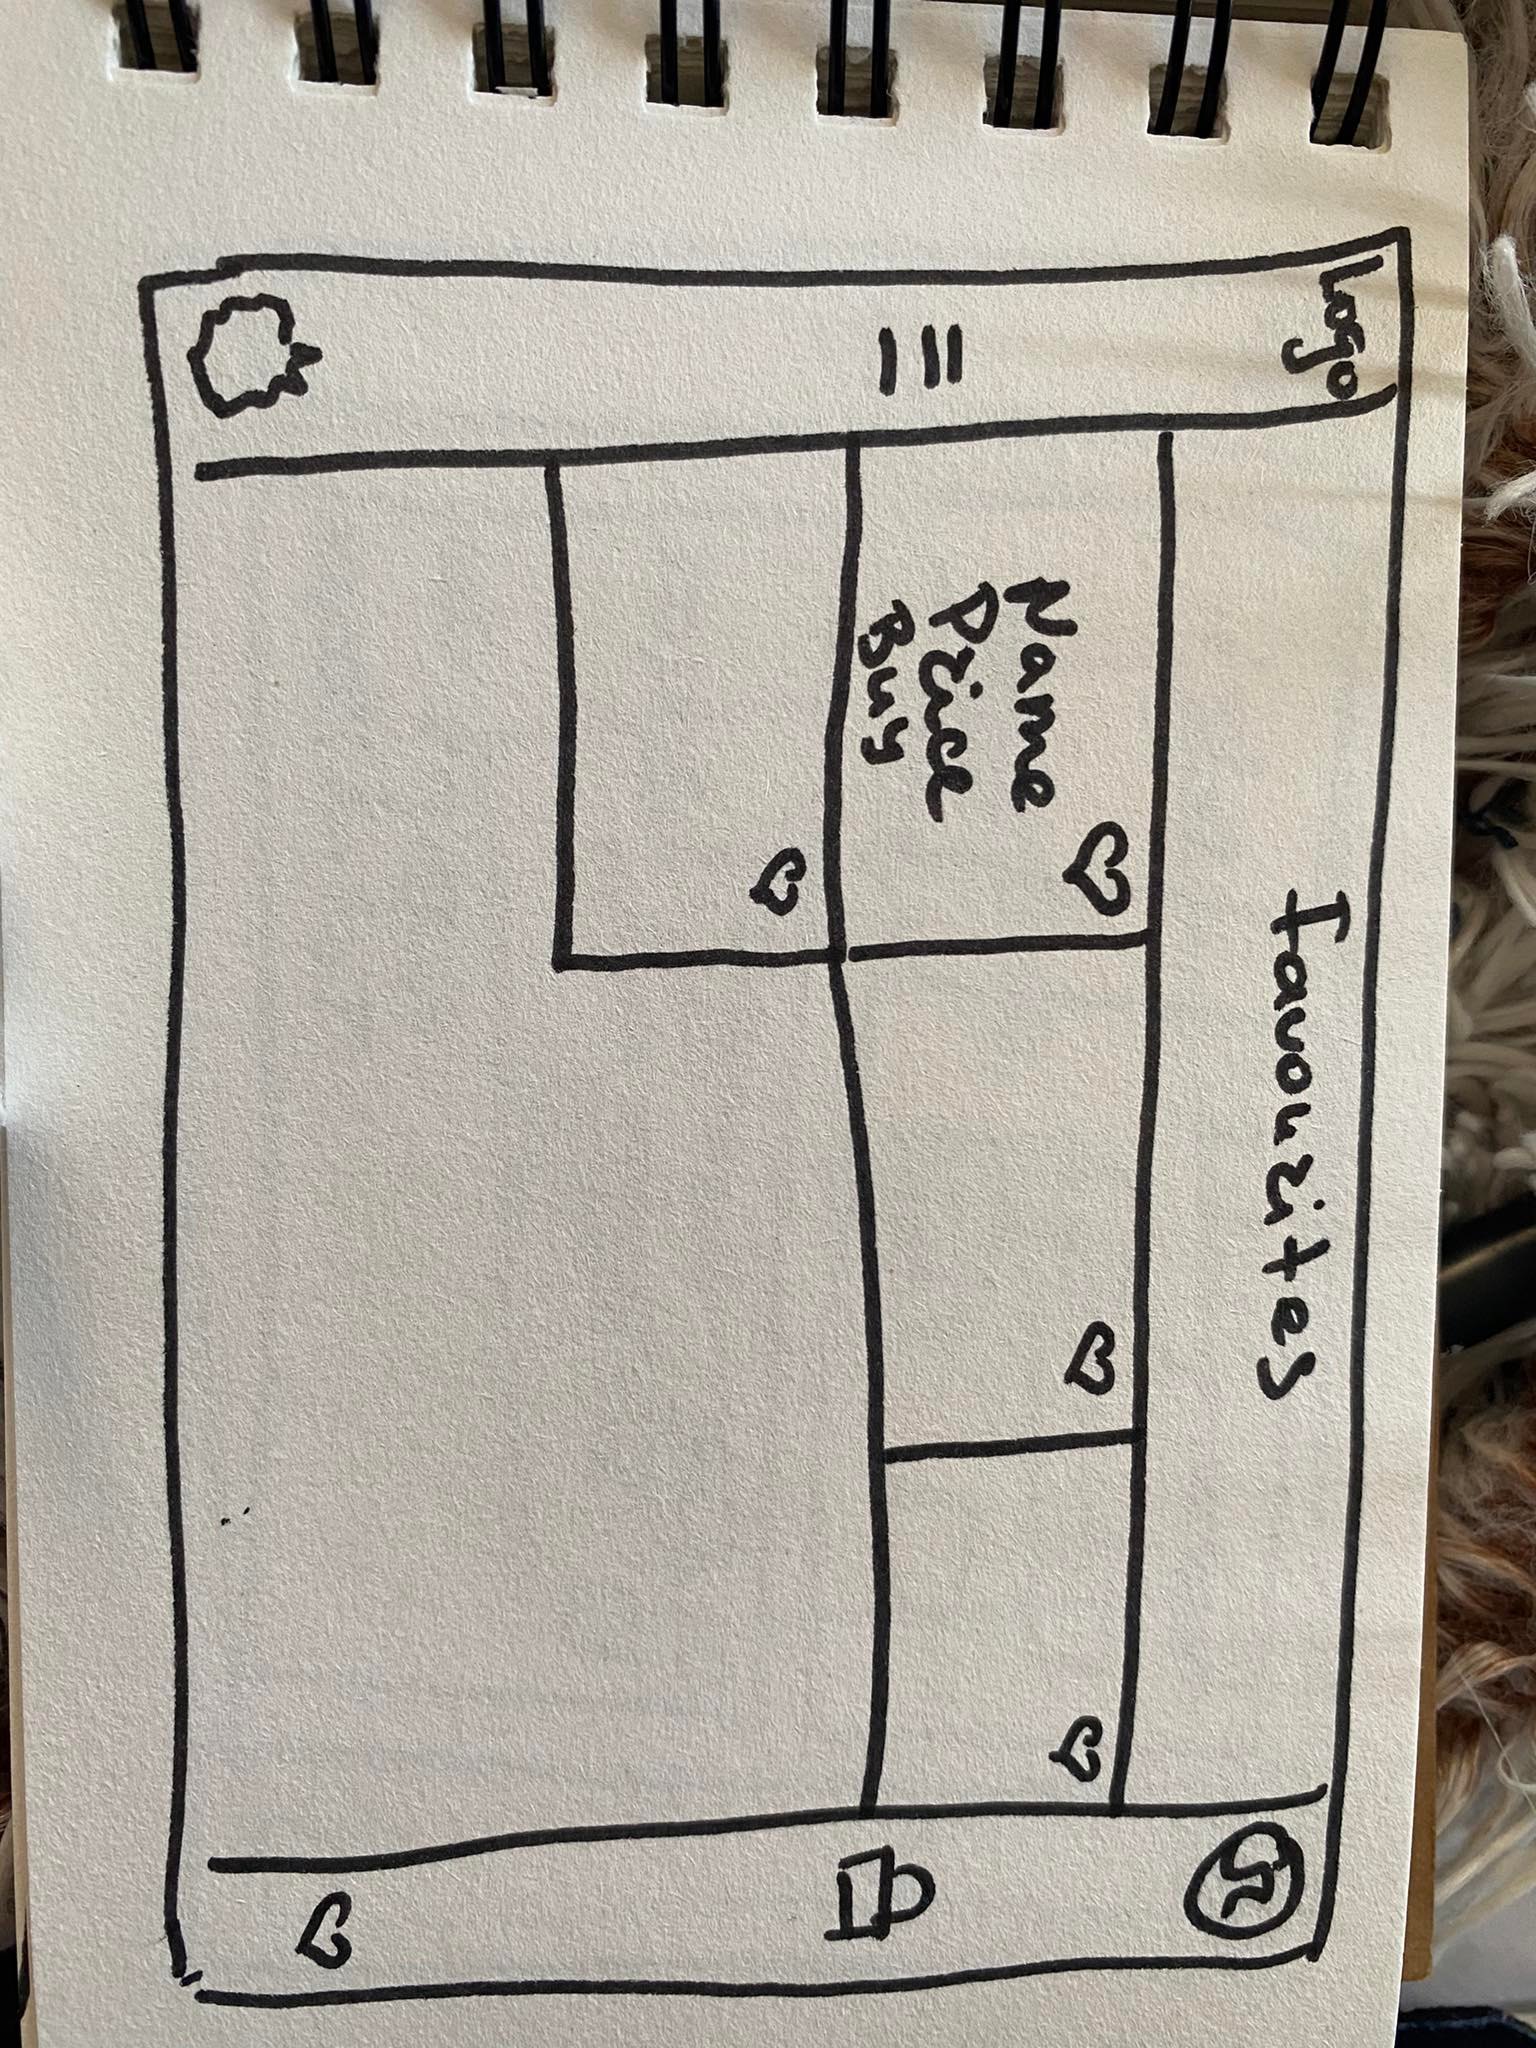 Logo
Favourites
Name
Price
Buy